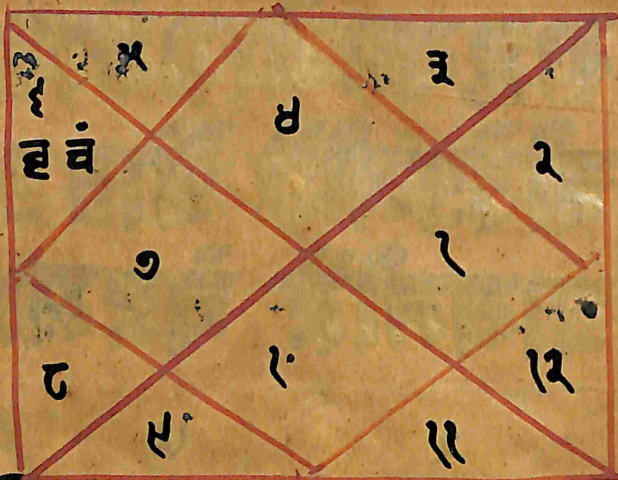 ५ ४ ३
६
बृ चं २
७ १
८ १० १२
९ ११